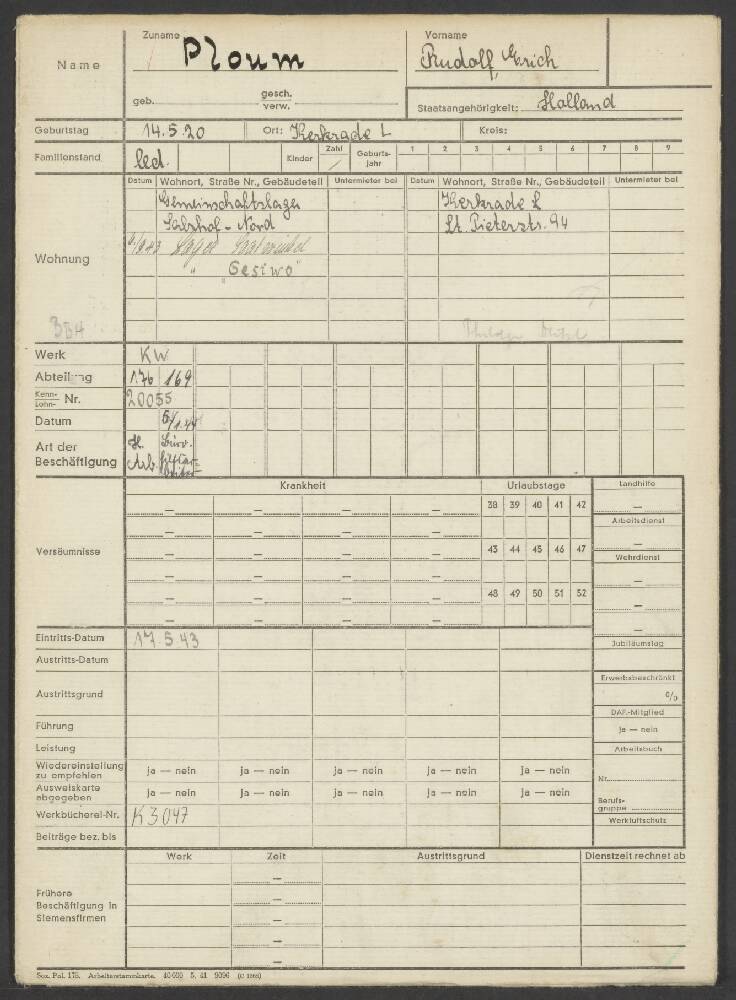 Name
Zuname Ploum
Vorname Rudolf, Erich
geb. gesch. verw.
Staatsangehörigkeit: Holland
Geburtstag 14.5.20 Ort: Kerkrade L Kreis:
Familienstand led. Kinder Zahl Geburts-jahr 1 2 3 4 5 6 7 8 9
Wohnung
Datum Wohnort, Straße Nr., Gebäudeteil Untermieter bei Datum Wohnort, Straße Nr., Gebäudeteil Untermieter bei
Gemeinschaftslager Kerkrade L
Salzhof - Nord St. Pieterstr. 94
Lager
" "Gesiwo"
364
Werk KW
Abteilung 176 169
Kenn- Lohn- Nr. 20055
Datum
Art der Beschäftigung H. Arb. Büro-
Versäumnisse
Krankheit Urlaubstage Landhilfe
38 39 40 41 42
Arbeitsdienst
43 44 45 46 47
Wehrdienst
48 49 50 51 52
Eintritts-Datum 17.5.43 Jubiläumstag
Austritts-Datum
Erwerbsbeschränkt
Austrittsgrund %
DAF.-Mitglied
Führung ja — nein
Leistung Arbeitsbuch
Wiedereinstellung zu empfehlen ja — nein ja — nein ja — nein ja — nein ja — nein
Nr.
Ausweiskarte abgegeben ja — nein ja — nein ja — nein ja — nein ja — nein
Berufs-gruppe
Werkbücherei-Nr. K3047 Werkluftschutz
Beiträge bez. bis
Werk Zeit Austrittsgrund Dienstzeit rechnet ab
Frühere
Beschäftigung in
Siemensfirmen
Soz. Pol. 175. Arbeiterstammkarte. 5. 41